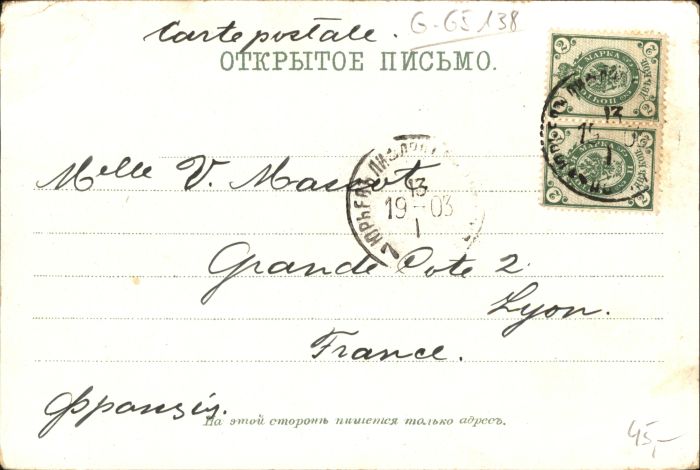 Carte postale.
G-GЕ 138
ОТКРЫТОЕ ПИСЬМО.
МАРКА
2
2
МАРКА
2
2
13
1
ЮРЬЕВЪ ЛИФЛЯНД
13
19-03
1
Melle V. Mascot
Grande Cote 2
Lyon.
France.
Франція.
На этой сторонѣ пишется только адресъ.
45,-